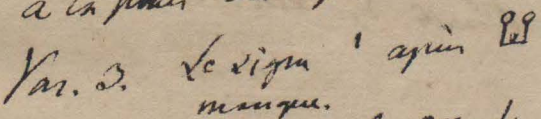 à la
Var. 3. Le signe ' après
manque.